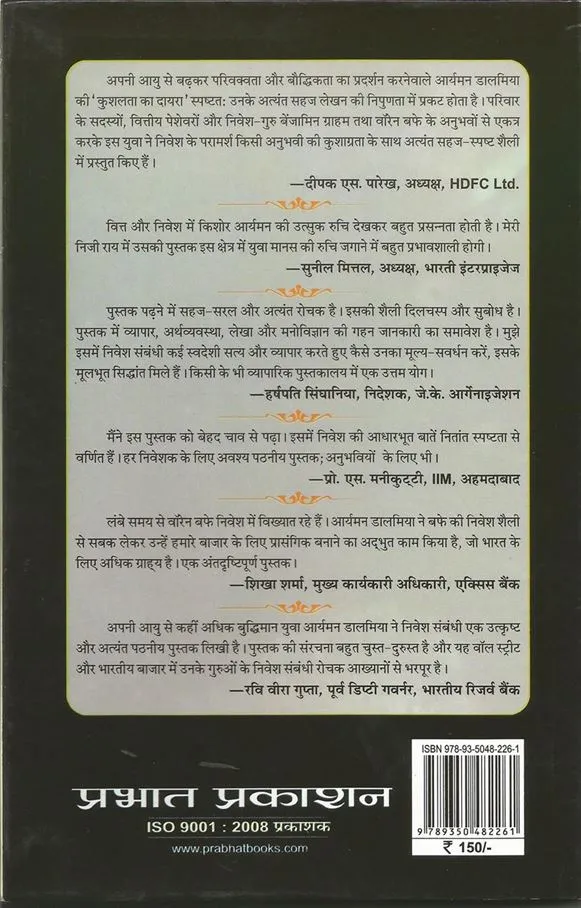 अपनी आयु से बढ़कर परिवक्वता और बौद्धिकता का प्रदर्शन करनेवाले आर्यमन डालमिया
की ‘कुशलता का दायरा’ स्पष्टत: उनके अत्यंत सहज लेखन की निपुणता में प्रकट होता है। परिवार
के सदस्यों, वित्तीय पेशेवरों और निवेश-गुरु बेंजामिन ग्राहम तथा वॉरेन बफे के अनुभवों से एकत्र
करके इस युवा ने निवेश के परामर्श किसी अनुभवी की कुशाग्रता के साथ अत्यंत सहज-स्पष्ट शैली
में प्रस्तुत किए हैं।
—दीपक एस. पारेख, अध्यक्ष, HDFC Ltd.
वित्त और निवेश में किशोर आर्यमन की उत्सुक रुचि देखकर बहुत प्रसन्नता होती है। मेरी
निजी राय में उसकी पुस्तक इस क्षेत्र में युवा मानस की रुचि जगाने में बहुत प्रभावशाली होगी।
—सुनील मित्तल, अध्यक्ष, भारती इंटरप्राइजेज
पुस्तक पढ़ने में सहज-सरल और अत्यंत रोचक है। इसकी शैली दिलचस्प और सुबोध है।
पुस्तक में व्यापार, अर्थव्यवस्था, लेखा और मनोविज्ञान की गहन जानकारी का समावेश है। मुझे
इसमें निवेश संबंधी कई स्वदेशी सत्य और व्यापार करते हुए कैसे उनका मूल्य-सवर्धन करें, इसके
मूलभूत सिद्धांत मिले हैं। किसी के भी व्यापारिक पुस्तकालय में एक उत्तम योग।
—हर्षपति सिंघानिया, निदेशक, जे.के. आर्गेनाइजेशन
मैंने इस पुस्तक को बेहद चाव से पढ़ा। इसमें निवेश की आधारभूत बातें नितांत स्पष्टता से
वर्णित हैं। हर निवेशक के लिए अवश्य पठनीय पुस्तक; अनुभवियों के लिए भी।
—प्रो. एस. मनीकुट्टी, IIM, अहमदाबाद
लंबे समय से वॉरेन बफे निवेश में विख्यात रहे हैं। आर्यमन डालमिया ने बफे की निवेश शैली
से सबक लेकर उन्हें हमारे बाजार के लिए प्रासंगिक बनाने का अद्भुत काम किया है, जो भारत के
लिए अधिक ग्राह्य है। एक अंतदृष्टिपूर्ण पुस्तक।
—शिखा शर्मा, मुख्य कार्यकारी अधिकारी, एक्सिस बैंक
अपनी आयु से कहीं अधिक बुद्धिमान युवा आर्यमन डालमिया ने निवेश संबंधी एक उत्कृष्ट
और अत्यंत पठनीय पुस्तक लिखी है। पुस्तक की संरचना बहुत चुस्त-दुरुस्त है और यह वॉल स्ट्रीट
और भारतीय बाजार में उनके गुरुओं के निवेश संबंधी रोचक आख्यानों से भरपूर है।
—रवि वीरा गुप्ता, पूर्व डिप्टी गवर्नर, भारतीय रिजर्व बैंक
प्रभात प्रकाशन
ISO 9001 : 2008 प्रकाशक
www.prabhatbooks.com
ISBN 978-93-5048-226-1
9 789350 482261
₹ 150/-